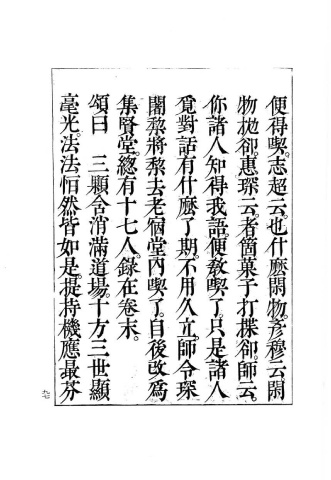 便得喫。志超云。也什麼閑物。彥穆云。閑
物拋卻。惠琛云。者箇菓子打揲卻。師云。
你諸人知得我語。便敎喫了。只是諸人
覓對話有什麼了期。不用久立。師令琛
闍棃將棃去老個堂內喫了。自後改爲
集賢堂。總有十七人。錄在卷末。
頌曰　三顆含消滿道場。十方三世顯
毫光。法法恬然皆如是。提持機應最芬
九七